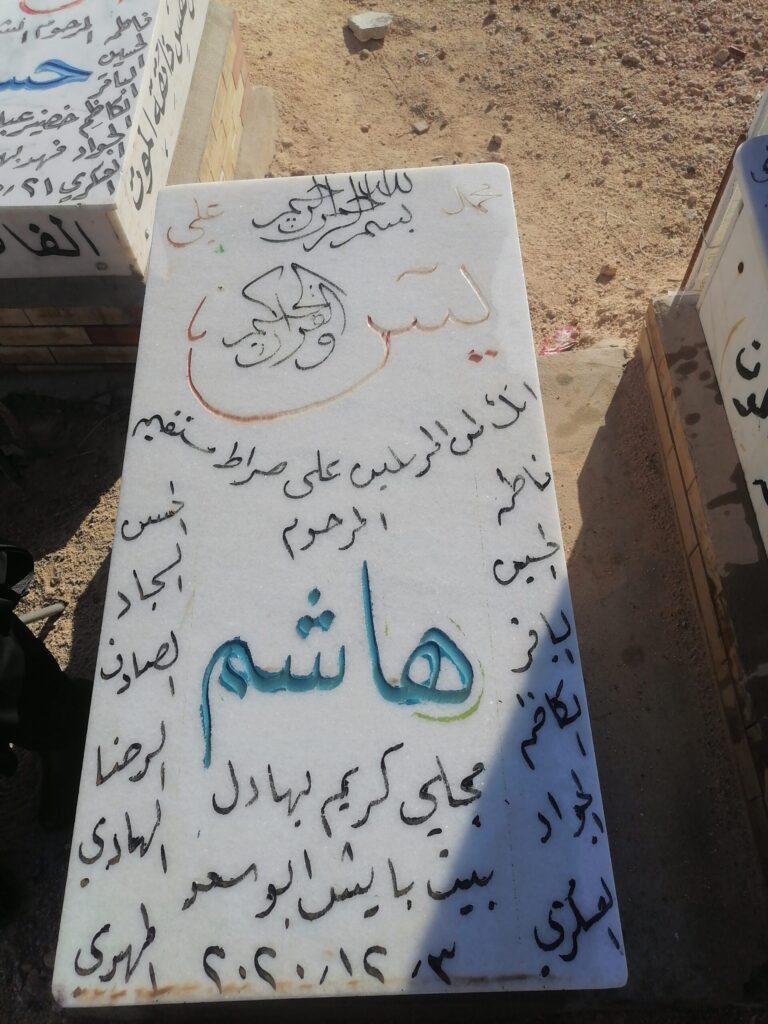 محمد
بسم الله الرحمن الرحيم
علي
يسٓ
والقرآن الحكيم
انك لمن المرسلين على صراط مستقيم
المرحوم
هاشم
مجلي كريم بهادل
بيت بايش البو سعد
٢٠٢٠/١٢/٣
فاطمه
الحسين
الباقر
الكاظم
الجواد
العسكري
الحسن
السجاد
الصادق
الرضا
الهادي
المهدي
فاطمة
الحسين
الباقر
الكاظم
الجواد
العسكري
المرحوم
خضير
فهد
ذائقة الموت